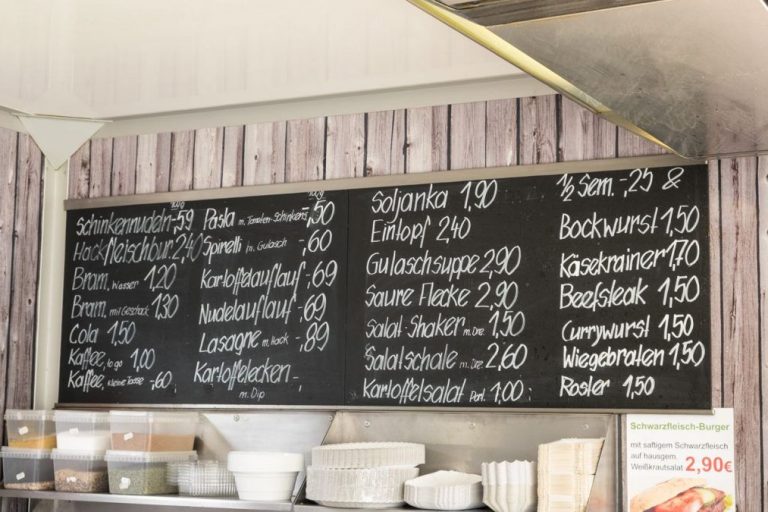 100g
Schinkennudeln -,59
Hackfleischbur. 2,40
Bram. Wasser 1,20
Bram. mit Geschack 1,30
Cola 1,50
Kaffee, to go 1,00
Kaffee, kleine Tasse -,60
100g
Pasta m. Tomaten-Schinkens. -,50
Spirelli m. Gulasch -,60
Kartoffelauflauf -,69
Nudelauflauf -,69
Lasagne m. Hack -,89
Kartoffelecken -,
m. Dip
Soljanka 1,90
Eintopf 2,40
Gulaschsuppe 2,90
Saure Flecke 2,90
Salat-Shaker m. Dre. 1,50
Salatschale m. Dre. 2,60
Kartoffelsalat Port. 1,00
1/2 Sem. -,25 &
Bockwurst 1,50
Käsekrainer 1,70
Beefsteak 1,50
Currywurst 1,50
Wiegebraten 1,50
Roster 1,50
Schwarzfleisch-Burger
mit saftigem Schwarzfleisch
auf hausgem.
Weißkrautsalat 2,90€